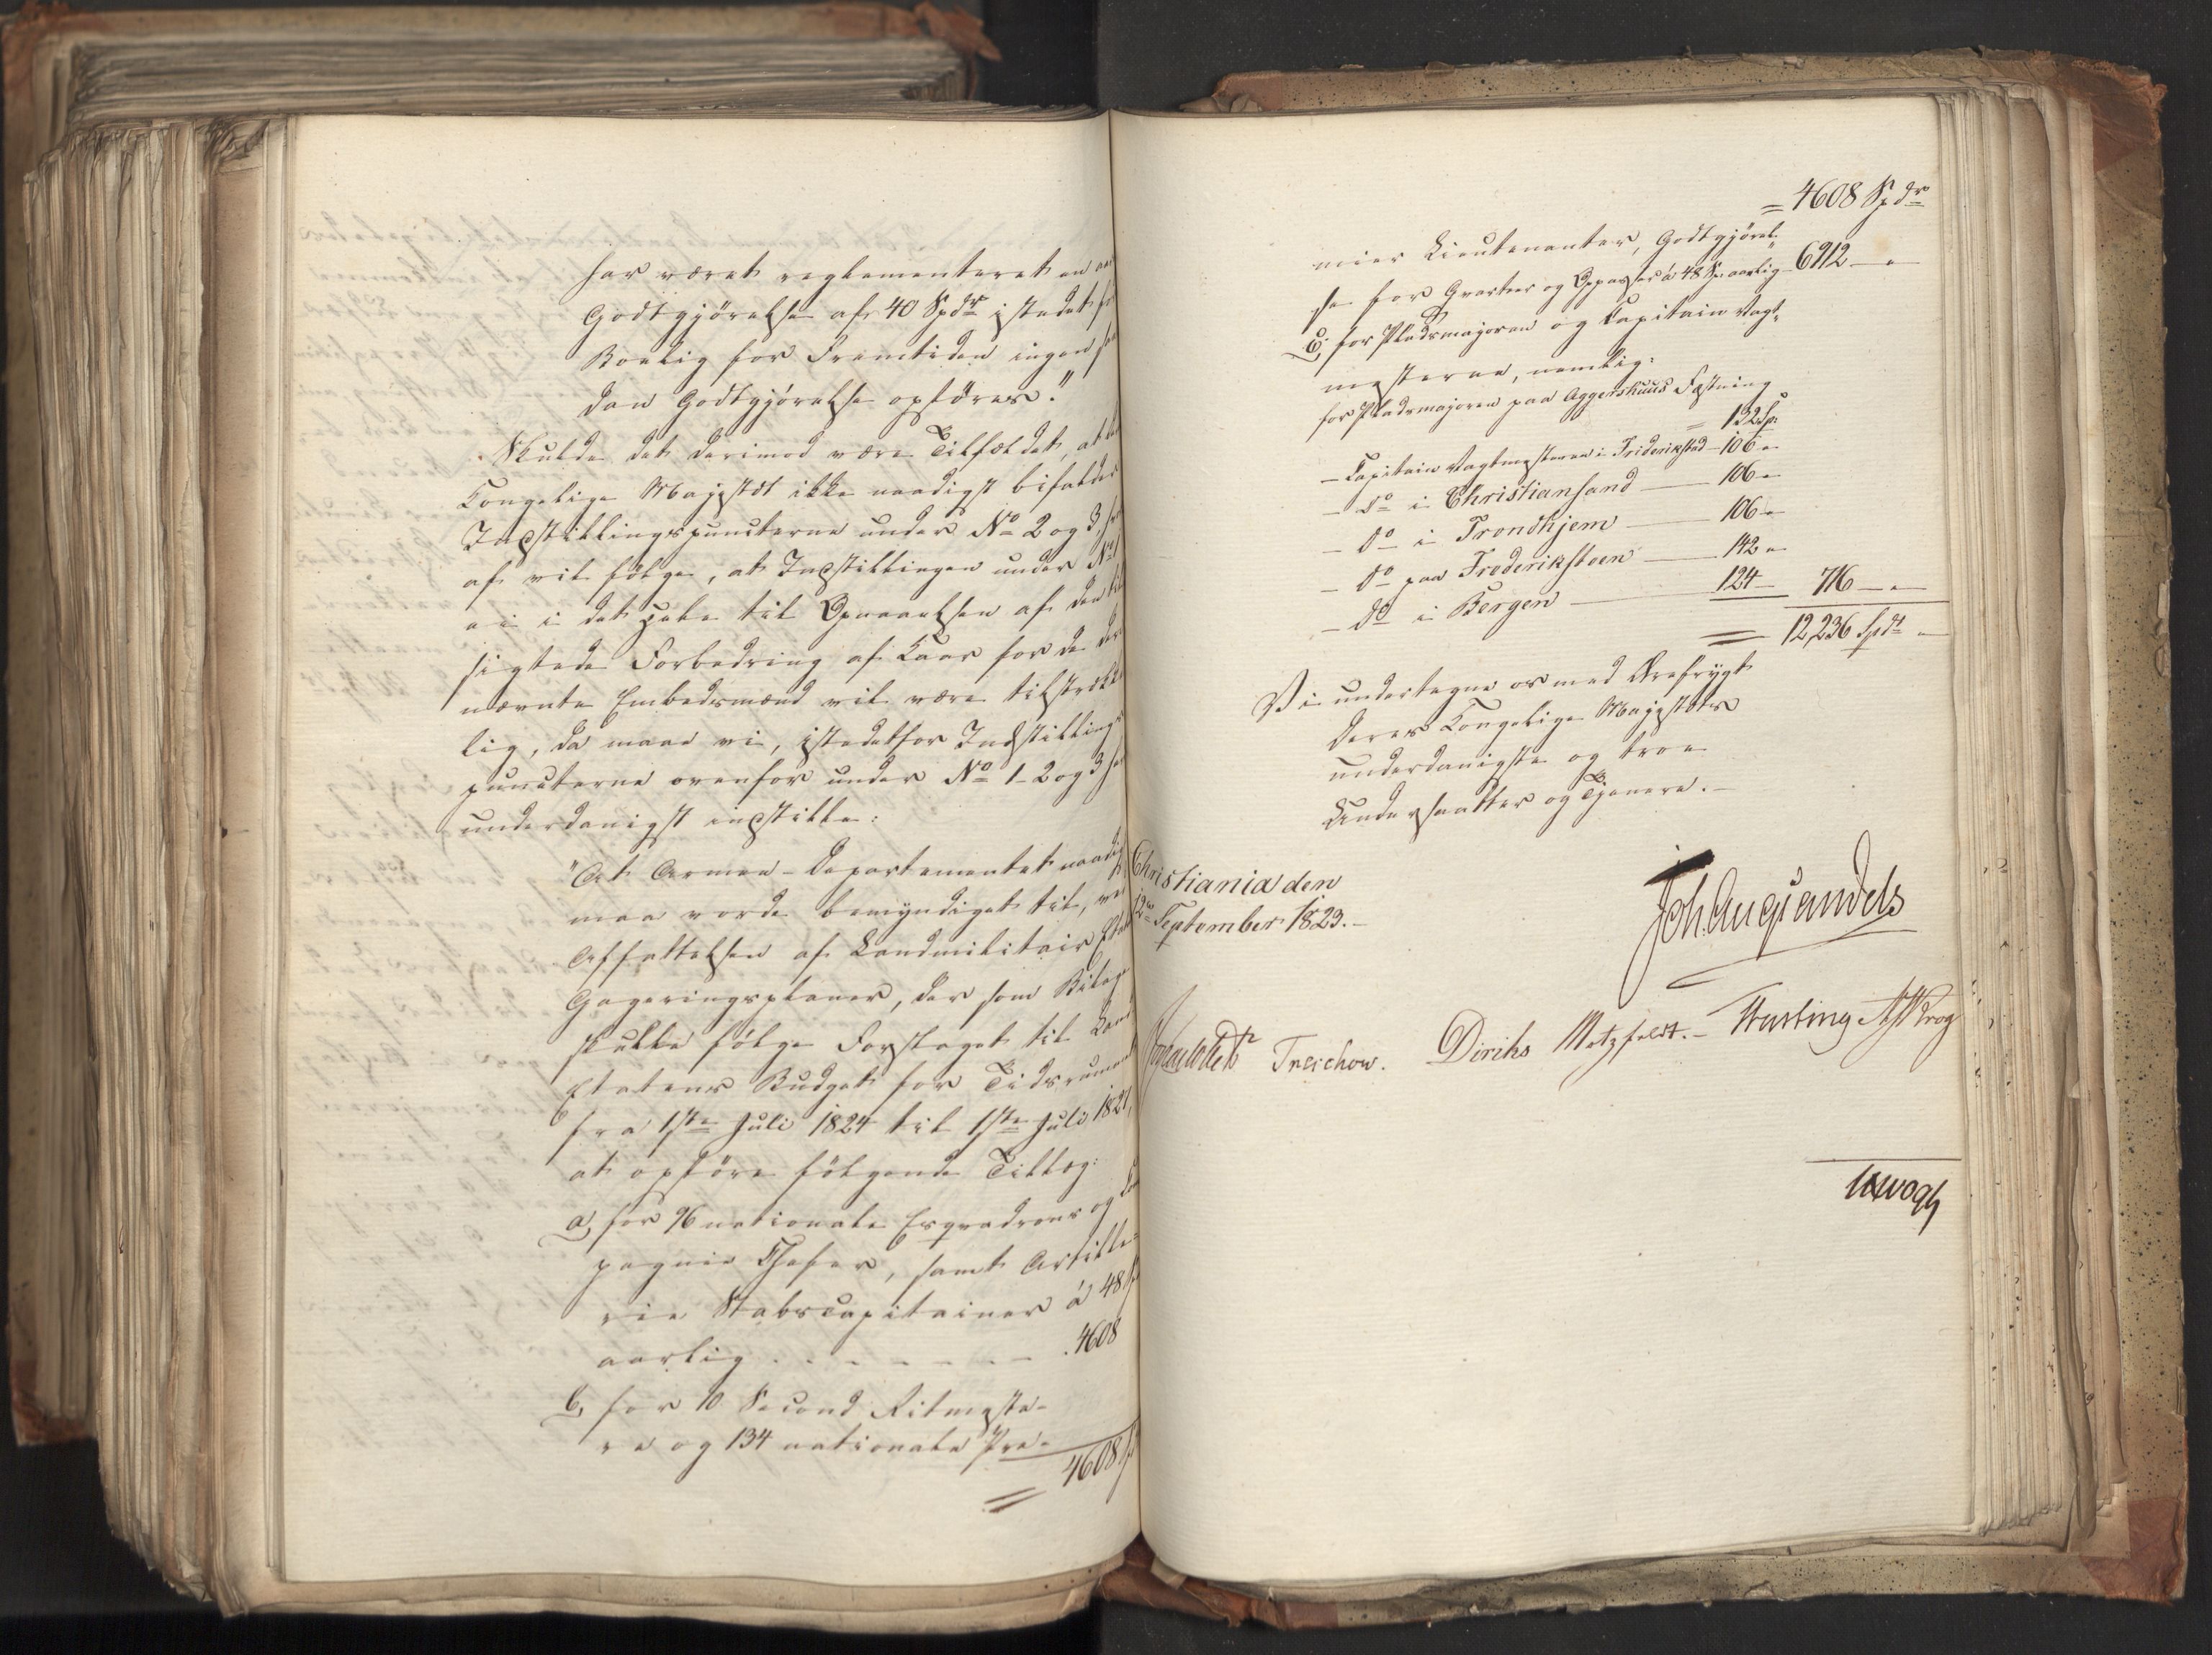 har været reglementeret en aar
Godtgjørelse af 40 Spdr istedet for
Boelig for Fremtiden ingen saa
dan Godtgjørelse opføres."
Skulde det derimod være Tilfældet, at
Kongelige Majestæt ikke naadigst bifalder
Indstillingspuncterne under No 2 og 3,
af vil følge, at Indstillingen under No 1
ei i det Hele til Opnaaelsen af den til
sigtede Forbedring af Kaar for de der
nævnte Embedsmænd vil være tilstrække
lig, da maae vi, istedetfor Indstillings
puncterne ovenfor under No 1-2 og 3 her
underdanigst indstille:
"At Armee-Departementet naadigst
maa vorde bemyndiget til, ved
Affattelsen af Landmilitair Etat
Gageringsplaner, der som Bilage
skulle følge Forslaget til Land
Etatens Budget for Tidsrummet
fra 1ste Juli 1824 til 1ste Juli 1827,
at opføre følgende Tillæg:
a, for 96 nationale Esqvadrons og Com
pagnie Chefer, samt Artille-
rie Stabscapitainer á 48 Sp
aarlig . . - - - - - . 4608
b, for 10 Second Ritmeste-
re og 134 nationale Pre-
= 4608 Sp
= 4608 Spdr
mier Lieutenanter, Godtgjørel-
se for Qvarteer og Oppasser á 48 Sp. aarlig - 6912 — "
C, for Pladsmajoren og Capitain Vagt-
mesterne, nemlig:
for Pladsmajoren paa Aggershuus Fæstning
= 132 Sp.
- Capitain Vagtmesteren i Friderikstad - 106 "
- Do i Christiansand — 106 "
- Do i Trondhjem — 106 "
- Do paa Frederiksteen — 142 "
- Do i Bergen — 124 — 716 — "
= 12,236 Spdr "
Vi undertegne os med Ærefrygt
Deres Kongelige Majestæts
underdanigste og troe
Undersaatter og Tjenere. -
Christiania den
12te September 1823. -
Joh. Aug. Sandels
Sommerhielm Treschow. Diriks Motzfeldt. - Fasting JHKrog
LWogh